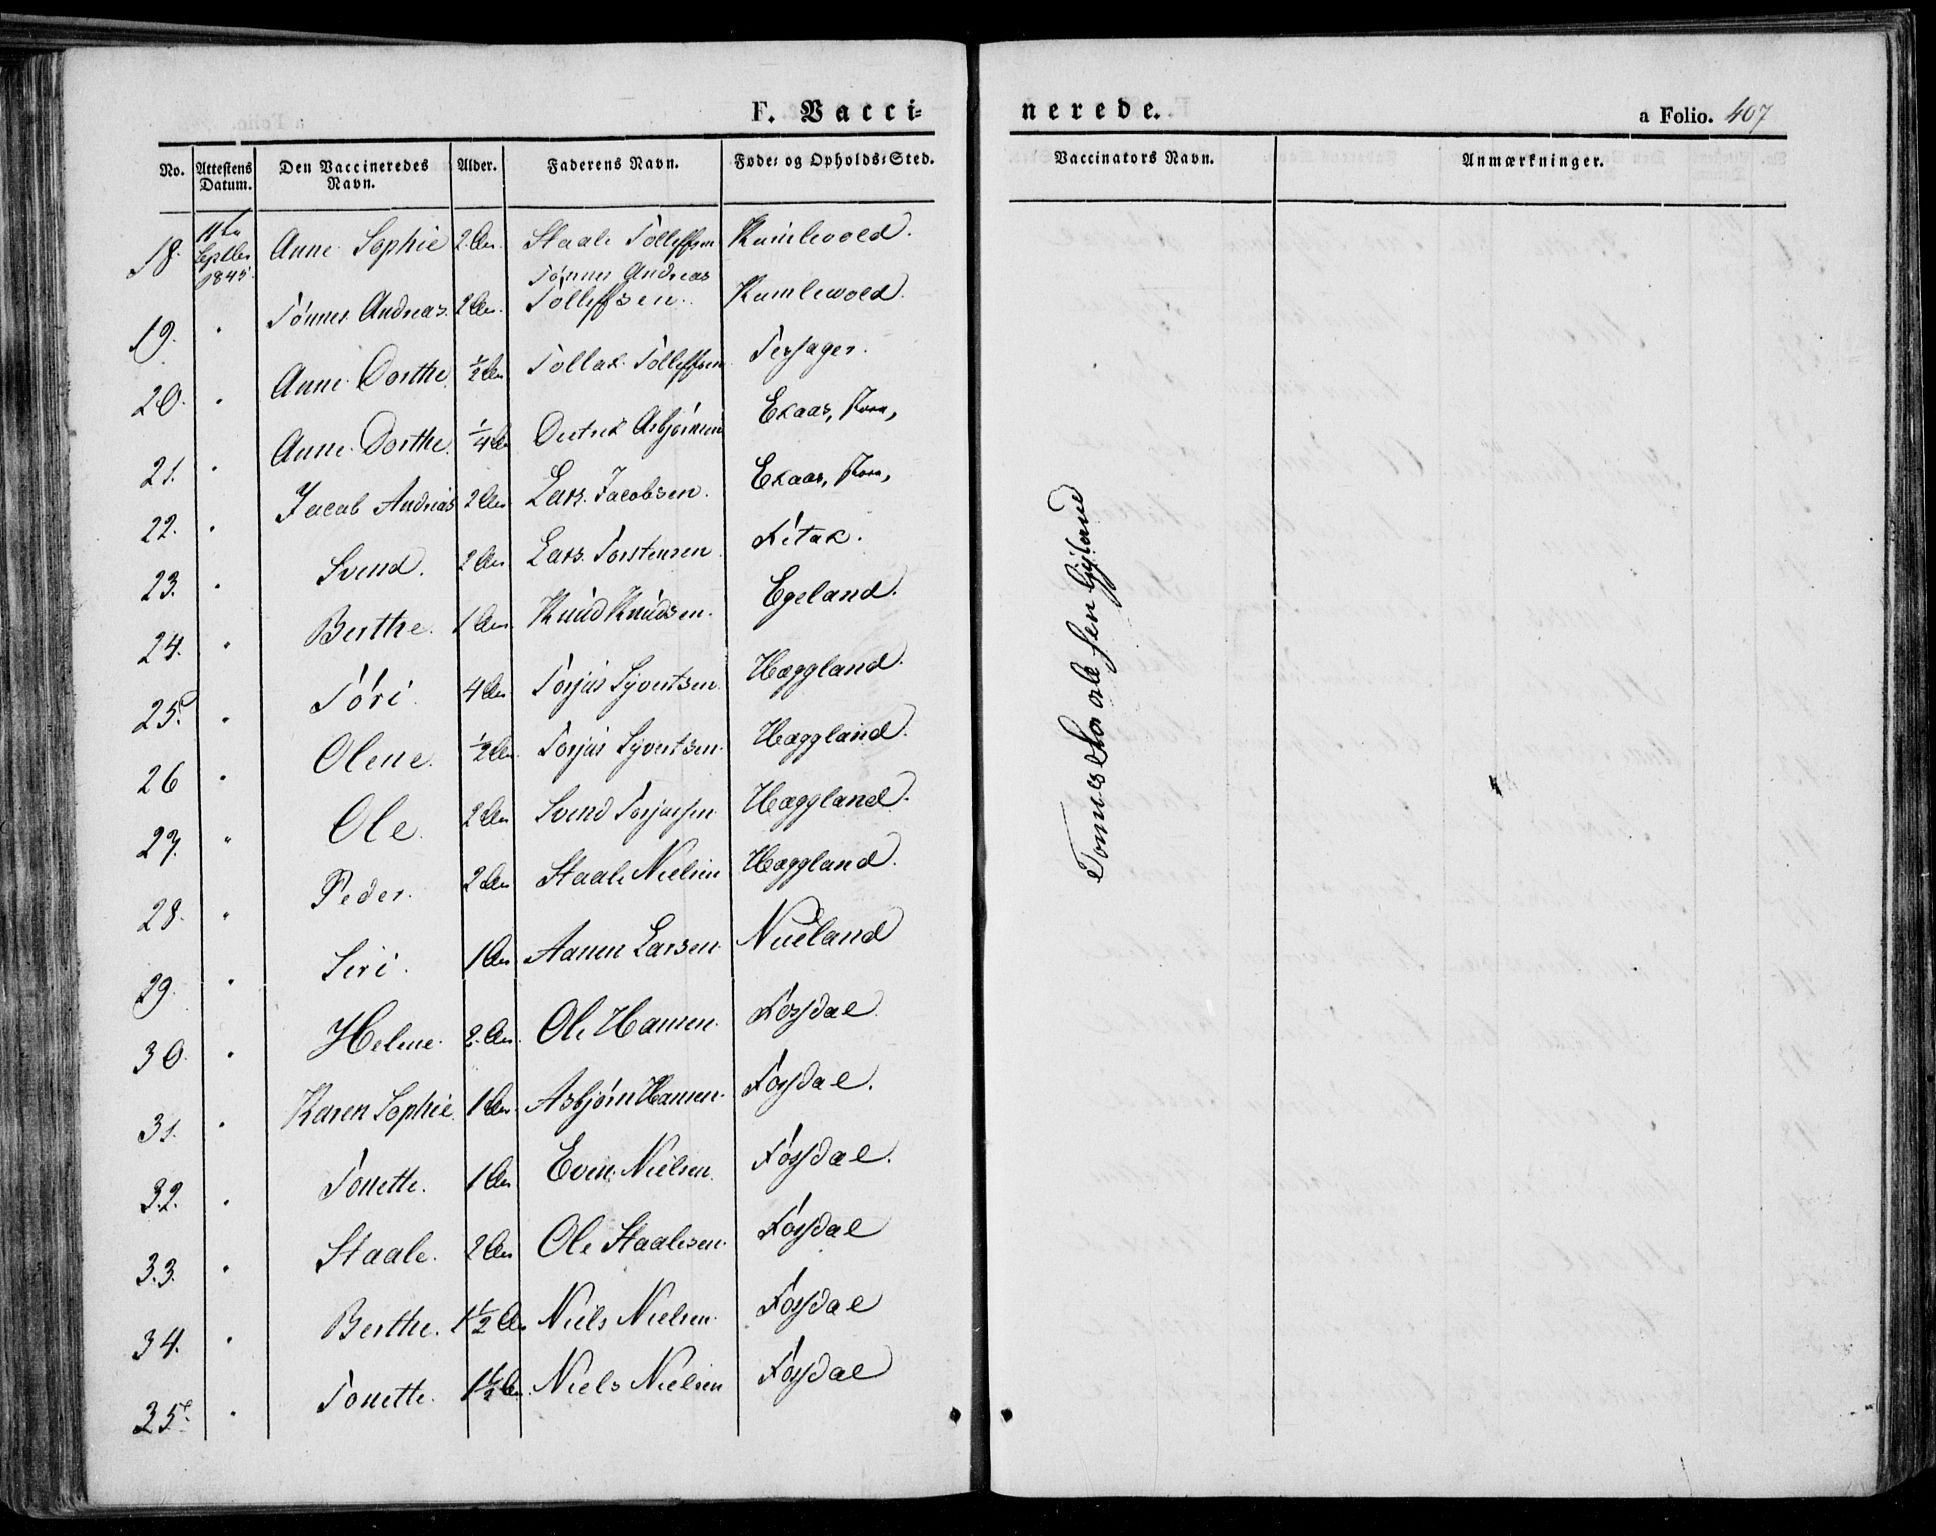 F. Vacci-
nerede.
a Folio. 407
No. Attestens Datum. Den Vaccineredes Navn. Alder. Faderens Navn. Føde- og Opholds-Sted. Vaccinators Navn. Anmærkninger.
18. 11te Septbr 1845. Anne Sophie 2 Aar. Staale Tolleffsen Kumlevold.
19. " Tønnes Andreas. 2 Aar. Tønnes Andreas Tolleffsen. Kumlevold.
20. " Anne Dorthe ½ Aar Tollak Tolleffsen Tersager.
21. " Anne Dorthe. ¼ Aar Dertrek Asbjørnsen Ekaas,
22. " Jacob Andreas 2 Aar Lars Jacobsen. Ekaas,
23. " Svend. 2 Aar Lars Torstensen Fitak.
24. " Berthe. 1 Aar. Knud Knudsen. Egeland.
25. " Tóri. 4 Aar Torjus Syvertsen. Hæggland.
26 " Olene. ½ Aar. Torjus Syvertsen. Hæggland.
27. " Ole. 2 Aar Svend Torjussen Hæggland.
28. " Peder. 2 Aar Staale Nielsen Hæggland.
29. " Siri. 1 Aar Aanen Larsen. Nueland
30. " Helene. 2. Aar. Ole Hansen. Fosdal.
31. " Karen Sophie. 1 Aar. Asbjørn Hansen. Fosdal.
32. " Tonette. 1 Aar Even Nielsen. Fosdal.
33. " Staale. 2 Aar Ole Staalesen. Fosdal
34. " Berthe. 1½ Aar Niels Nielsen. Fosdal
35. " Tonette. 1½ Aar. Niels Nielsen Fosdal
Tønnes Staalesen Gyland